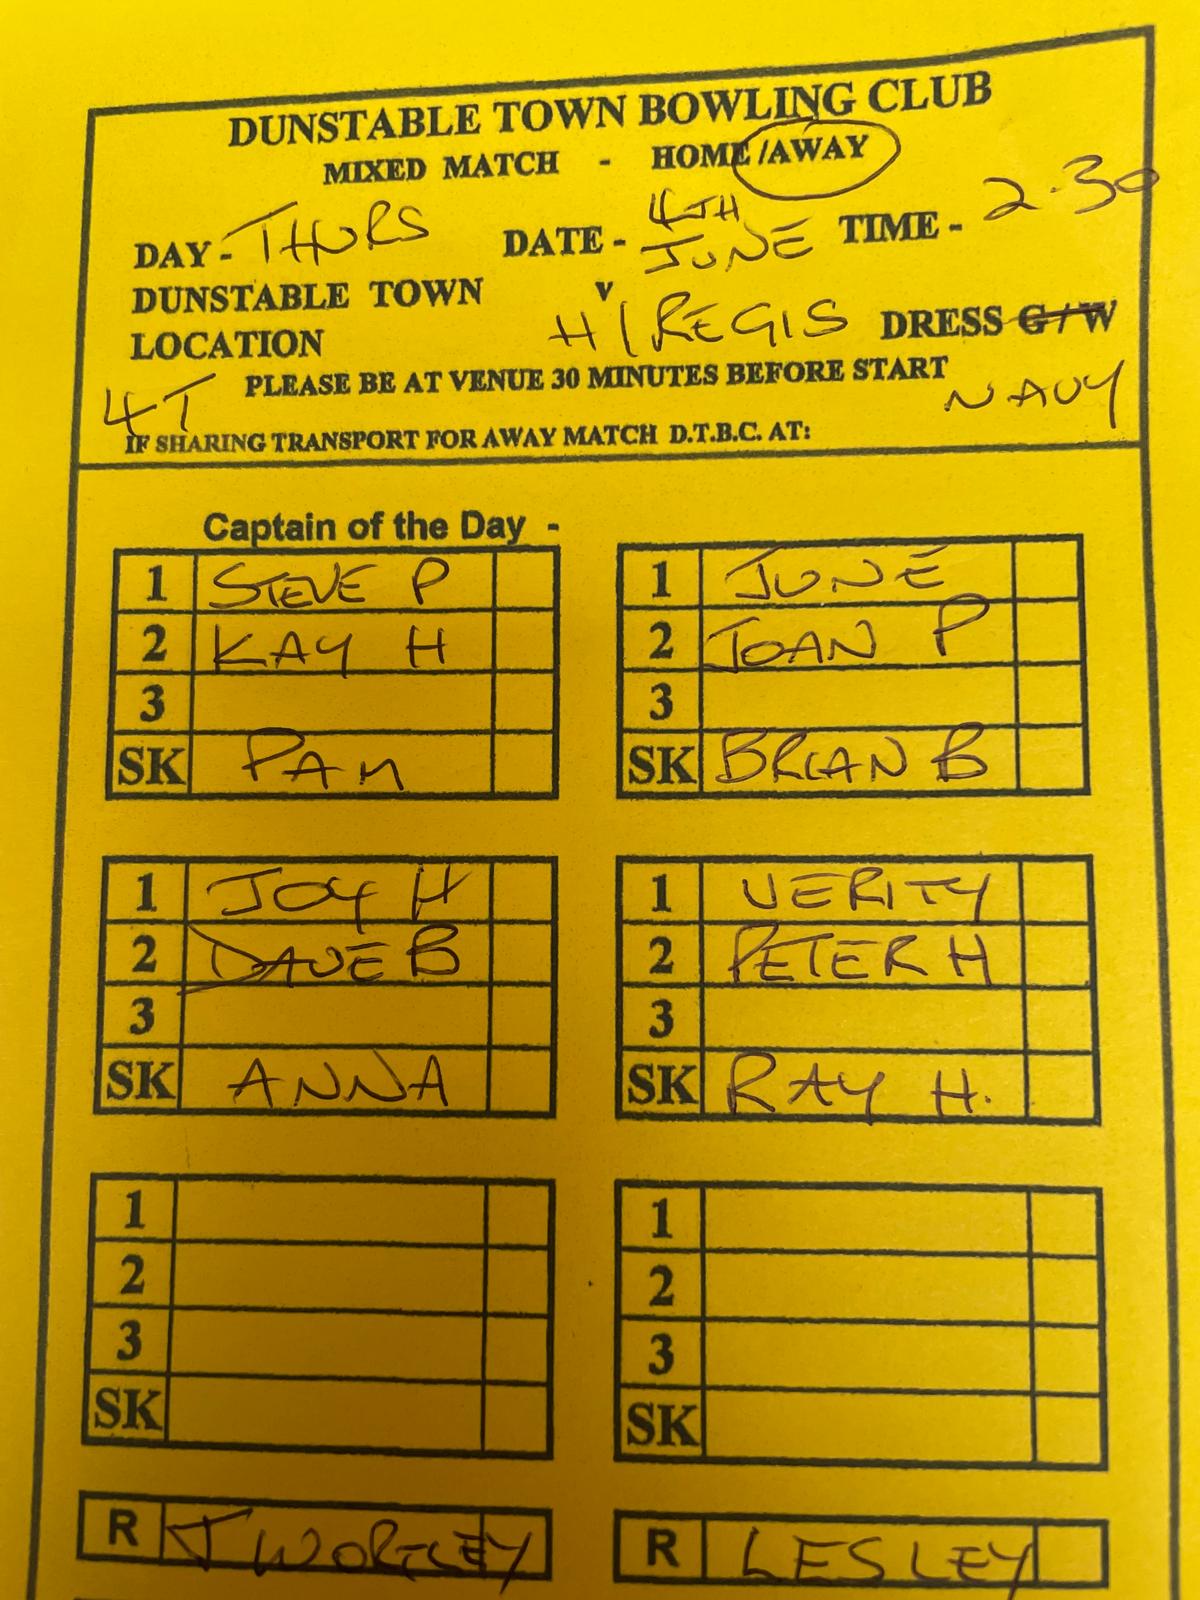 DUNSTABLE TOWN BOWLING CLUB
MIXED MATCH - HOME /AWAY
DAY - THURS DATE - 4TH JUNE TIME - 2.30
DUNSTABLE TOWN v H/REGIS
LOCATION DRESS G/W NAVY
4T PLEASE BE AT VENUE 30 MINUTES BEFORE START
IF SHARING TRANSPORT FOR AWAY MATCH D.T.B.C. AT:
Captain of the Day -
1 STEVE P
2 KAY H
3
SK PAM
1 JUNE
2 JOAN P
3
SK BRIAN B
1 JOY H
2 DAVE B
3
SK ANNA
1 VERITY
2 PETER H
3
SK RAY H.
1
2
3
SK
1
2
3
SK
R J WORTLEY
R LESLEY